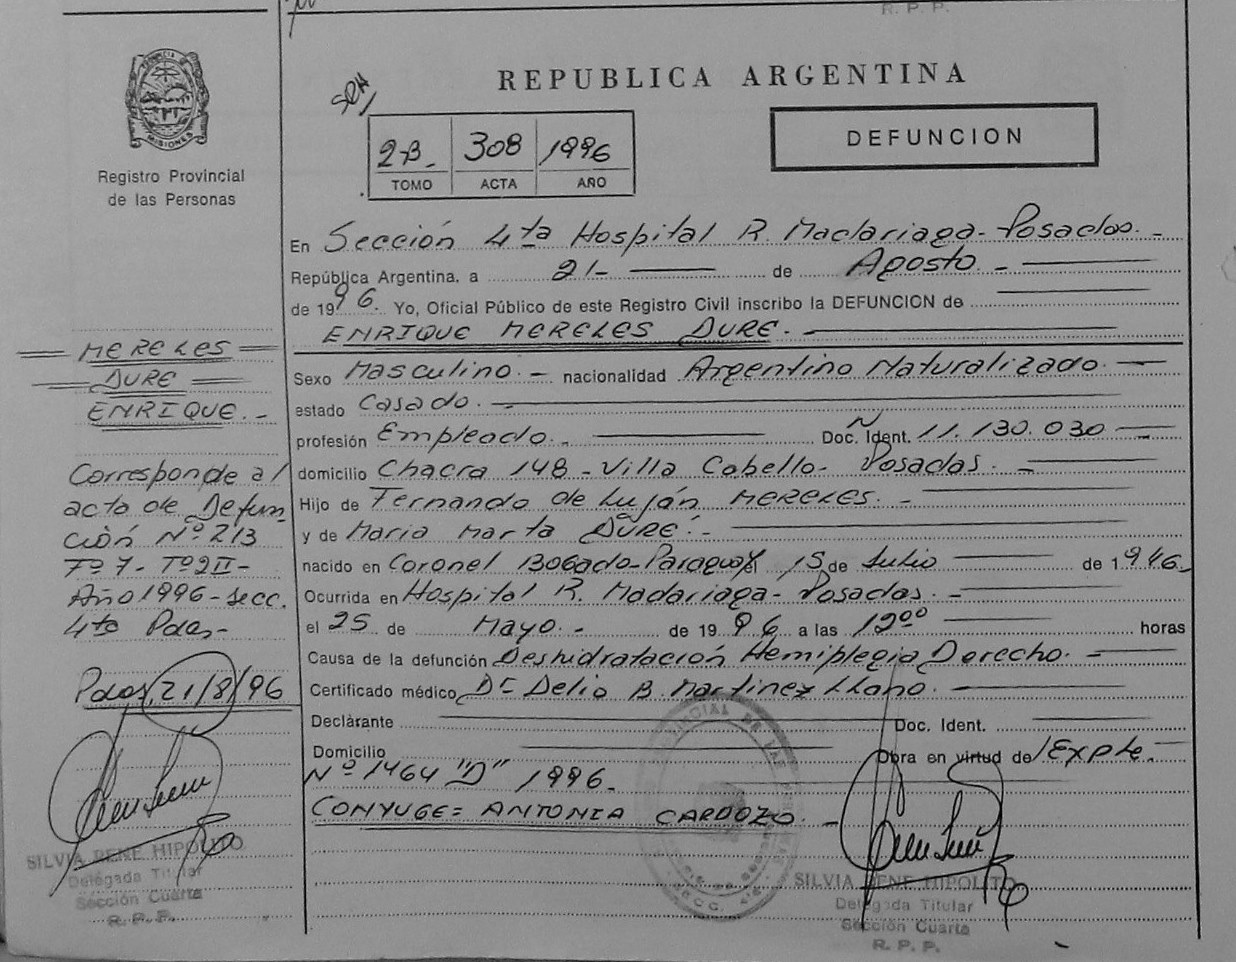 R. P. P.
PROVINCIA DE MISIONES
Registro Provincial
de las Personas
REPUBLICA ARGENTINA
DEFUNCION
2-B_ 308 1996
TOMO ACTA AÑO
En Sección 4ta Hospital R. Madariaga-Posadas.-
República Argentina, a 21- de Agosto.-
de 1996. Yo, Oficial Público de este Registro Civil inscribo la DEFUNCION de
ENRIQUE MERELES DURE.-
Sexo Masculino.- nacionalidad Argentino Naturalizado.-
estado Casado.-
profesión Empleado.- Doc. Ident. N 11.130.030
domicilio Chacra 148-Villa Cabello- Posadas.-
Hijo de Fernando de Luján MERELES.-
y de Maria Marta DURE.-
nacido en Coronel Bogado-Paraguay el 15 de Julio de 1946.
Ocurrida en Hospital R. Madariaga- Posadas.-
el 25 de Mayo.- de 1996 a las 12°° horas
Causa de la defunción Deshidratación Hemiplegia Derecho.-
Certificado médico Dr Delio B. Martinez Llano.-
Declarante Doc. Ident.
Domicilio Obra en virtud de/Expte.
Nº 1464 "D" 1996.
CONYUGE= ANTONIA CARDOZO.-
MERELES
DURE
ENRIQUE.-
Corresponde al
acta de Defun
ción Nº 213
Fº 7- Tº 2II-
Año 1996-Secc.
4ta Pdas-
Pdas, 21/8/96
SILVIA RENE HIPOLITO
Delegada Titular
Sección Cuarta
R. P. P.
SILVIA RENE HIPOLITO
Delegada Titular
Sección Cuarta
R. P. P.